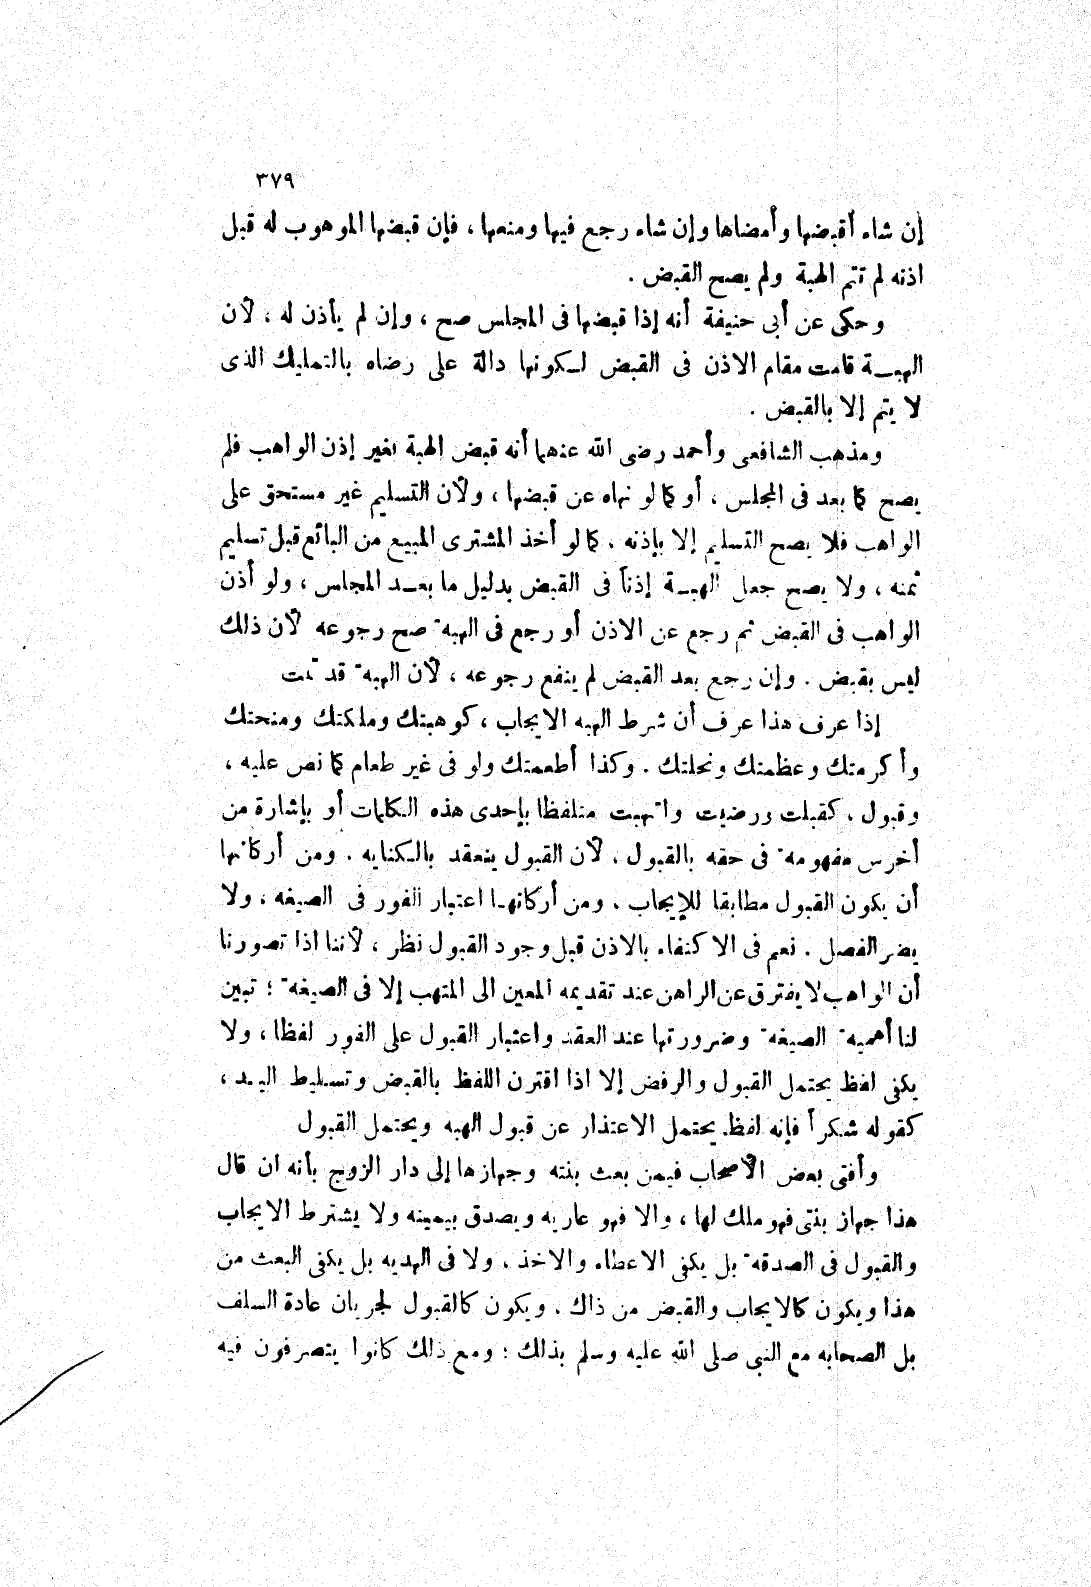 ٣٧٩
إن شاء أقبضها وأمضاها وإن شاء رجع فيها ومنعها ، فإن قبضها الموهوب له قبل
اذنه لم تتم الهبة ولم يصح القبض .
وحكى عن أبى حنيفة أنه إذا قبضها فى المجلس صح ، وإن لم يأذن له ، لأن
الهبـــة قامت مقام الاذن فى القبض لـكونها دالة على رضاه بالتمليك الذى
لا يتم إلا بالقبض .
ومذهب الشافعى وأحمد رضى الله عنهما أنه قبض الهبة بغير إذن الواهب فلم
يصح كما بعد فى المجلس ، أو كما لو نهاه عن قبضها ، ولأن التسليم غير مستحق على
الواهب فلا يصح التسليم إلا بإذنه . كما لو أخذ المشترى المبيع من البائع قبل تسليم
ثمنه ، ولا يصح جعل الهبـــة إذنا فى القبض بدليل ما بعـــد المجلس ، ولو أذن
الواهب فى القبض ثم رجع عن الاذن أو رجع فى الهبة صح رجوعه لأن ذلك
ليس بقبض . وإن رجع بعد القبض لم ينفع رجوعه ، لأن الهبة قد تمت
إذا عرف هذا عرف أن شرط الهبه الايجاب ، كوهبتك وملكتك ومنحتك
وأكرمتك وعظمتك ونحلتك . وكذا أطعمتك ولو فى غير طعام كما نص عليه ،
وقبول ، كقبلت ورضيت واتهبت متلفظا بإحدى هذه الـكلمات أو بإشارة من
أخرس مفهومة فى حقه بالقبول ، لأن القبول ينعقد بالـكنايه . ومن أركانها
أن يكون القبول مطابقا للإيجاب . ومن أركانهـا اعتبار الفور فى الصيغه ، ولا
يضر الفصل . نعم فى الاكتفاء بالاذن قبل وجود القبول نظر ، لأننا اذا تصورنا
أن الواهب لا يفترق عن الراهن عند تقديمه المعين الى المتهب إلا فى الصيغة ؛ تبين
لنا أهمية الصيغة وضرورتها عند العقد واعتبار القبول على الفور لفظا ، ولا
يكفى لفظ يحتمل القبول والرفض إلا اذا اقترن اللفظ بالقبض وتسليط اليـد ،
كقوله شكرا فإنه لفظ يحتمل الاعتذار عن قبول الهبه ويحتمل القبول
وأفتى بعض الأصحاب فيمن بعث بنته وجهازها إلى دار الزوج بأنه ان قال
هذا جهاز بنتى فهو ملك لها ، والا فهو عاريه ويصدق بيمينه ولا يشترط الايجاب
والقبول فى الصدقة بل يكفى الاعطاء والاخذ ، ولا فى الهديه بل يكفى البعث من
هذا ويكون كالايجاب والقبض من ذاك . ويكون كالقبول لجريان عادة السلف
بل الصحابه مع النبى صلى الله عليه وسلم بذلك ؛ ومع ذلك كانوا يتصرفون فيه